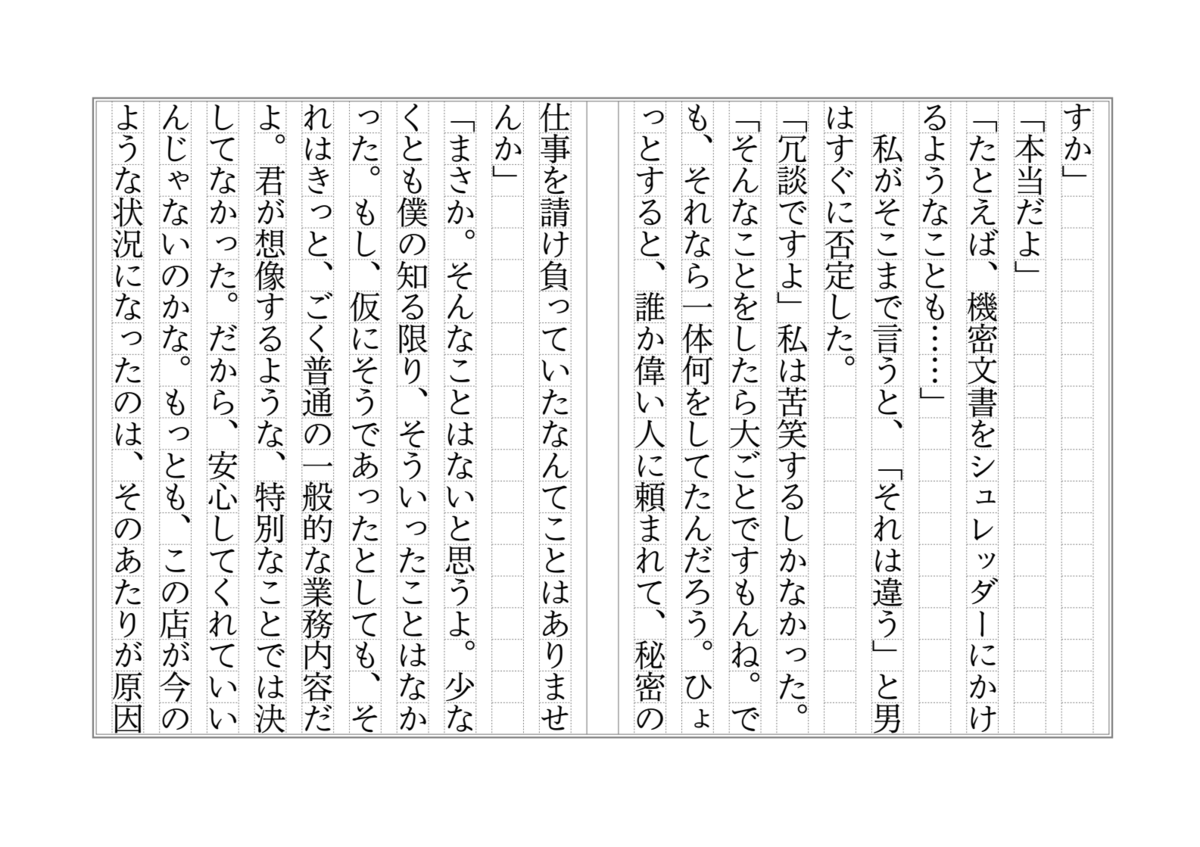 すか」
「本当だよ」
「たとえば、機密文書をシュレッダーにかけ
るようなことも……」
　私がそこまで言うと、「それは違う」と男
はすぐに否定した。
「冗談ですよ」私は苦笑するしかなかった。
「そんなことをしたら大ごとですもんね。で
も、それなら一体何をしてたんだろう。ひょ
っとすると、誰か偉い人に頼まれて、秘密の
仕事を請け負っていたなんてことはありませ
んか」
「まさか。そんなことはないと思うよ。少な
くとも僕の知る限り、そういったことはなか
った。もし、仮にそうであったとしても、そ
れはきっと、ごく普通の一般的な業務内容だ
よ。君が想像するような、特別なことでは決
してなかった。だから、安心してくれていい
んじゃないのかな。もっとも、この店が今の
ような状況になったのは、そのあたりが原因